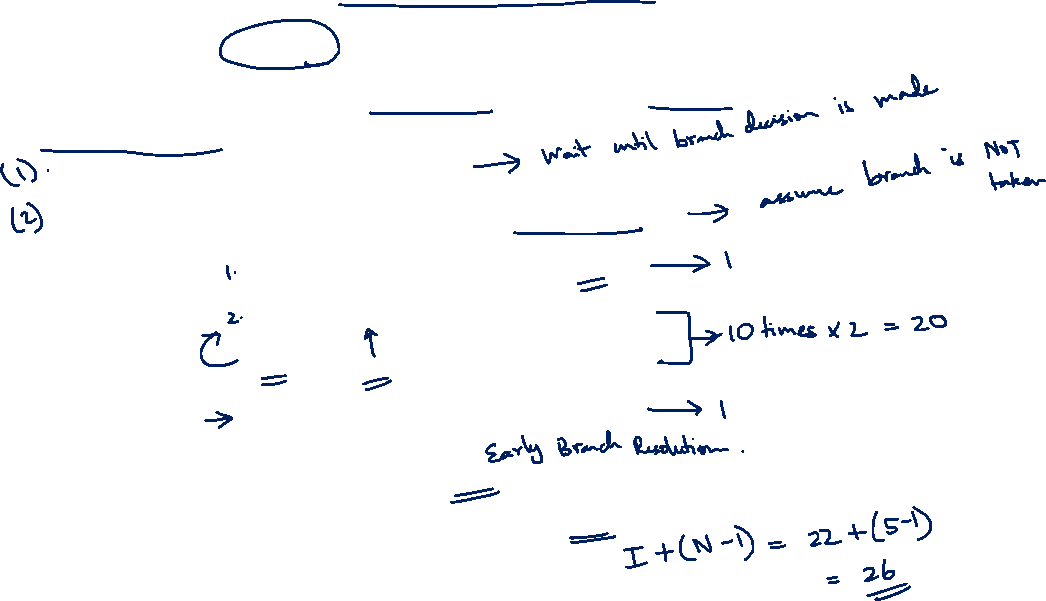 → wait until branch decision is made
(1).
→ assume branch is NOT taken
(2)
→ 1
1.
2.
→ 10 times x 2 = 20
→ 1
Early Branch Resolution.
I + (N-1) = 22 + (5-1)
= 26